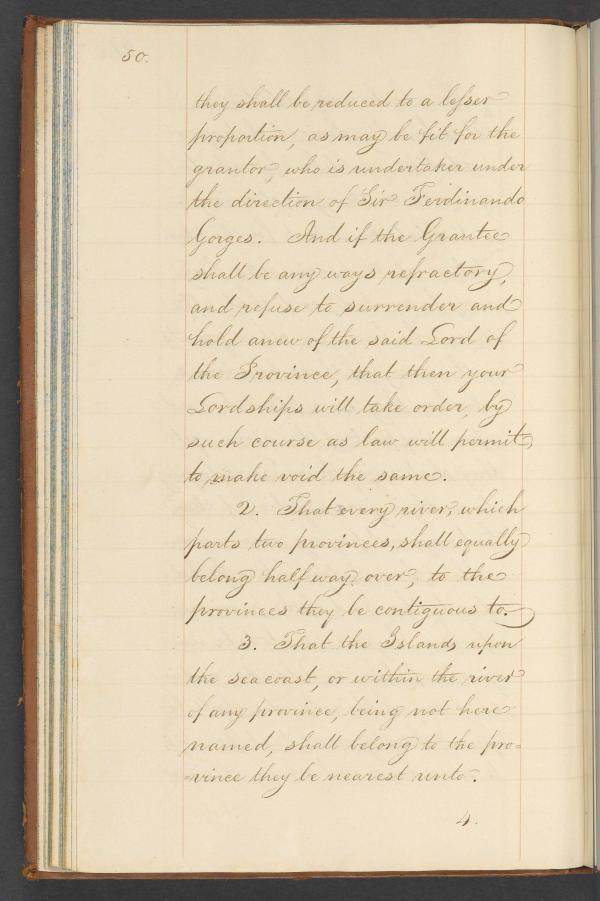 50.
they shall be reduced to a lesser
proportion, as may be fit for the
grantor, who is undertaker under
the direction of Sir Ferdinando
Gorges. And if the Grantee
shall be any ways refractory,
and refuse to surrender and
hold anew of the said Lord of
the Province, that then your
Lordships will take order, by
such course as law will permit,
to make void the same.
2. That every river, which
parts two provinces, shall equally
belong half way over, to the
provinces they be contiguous to.
3. That the Islands upon
the sea coast, or within the river
of any province, being not here
named, shall belong to the pro=
=vince they be nearest unto.
4.